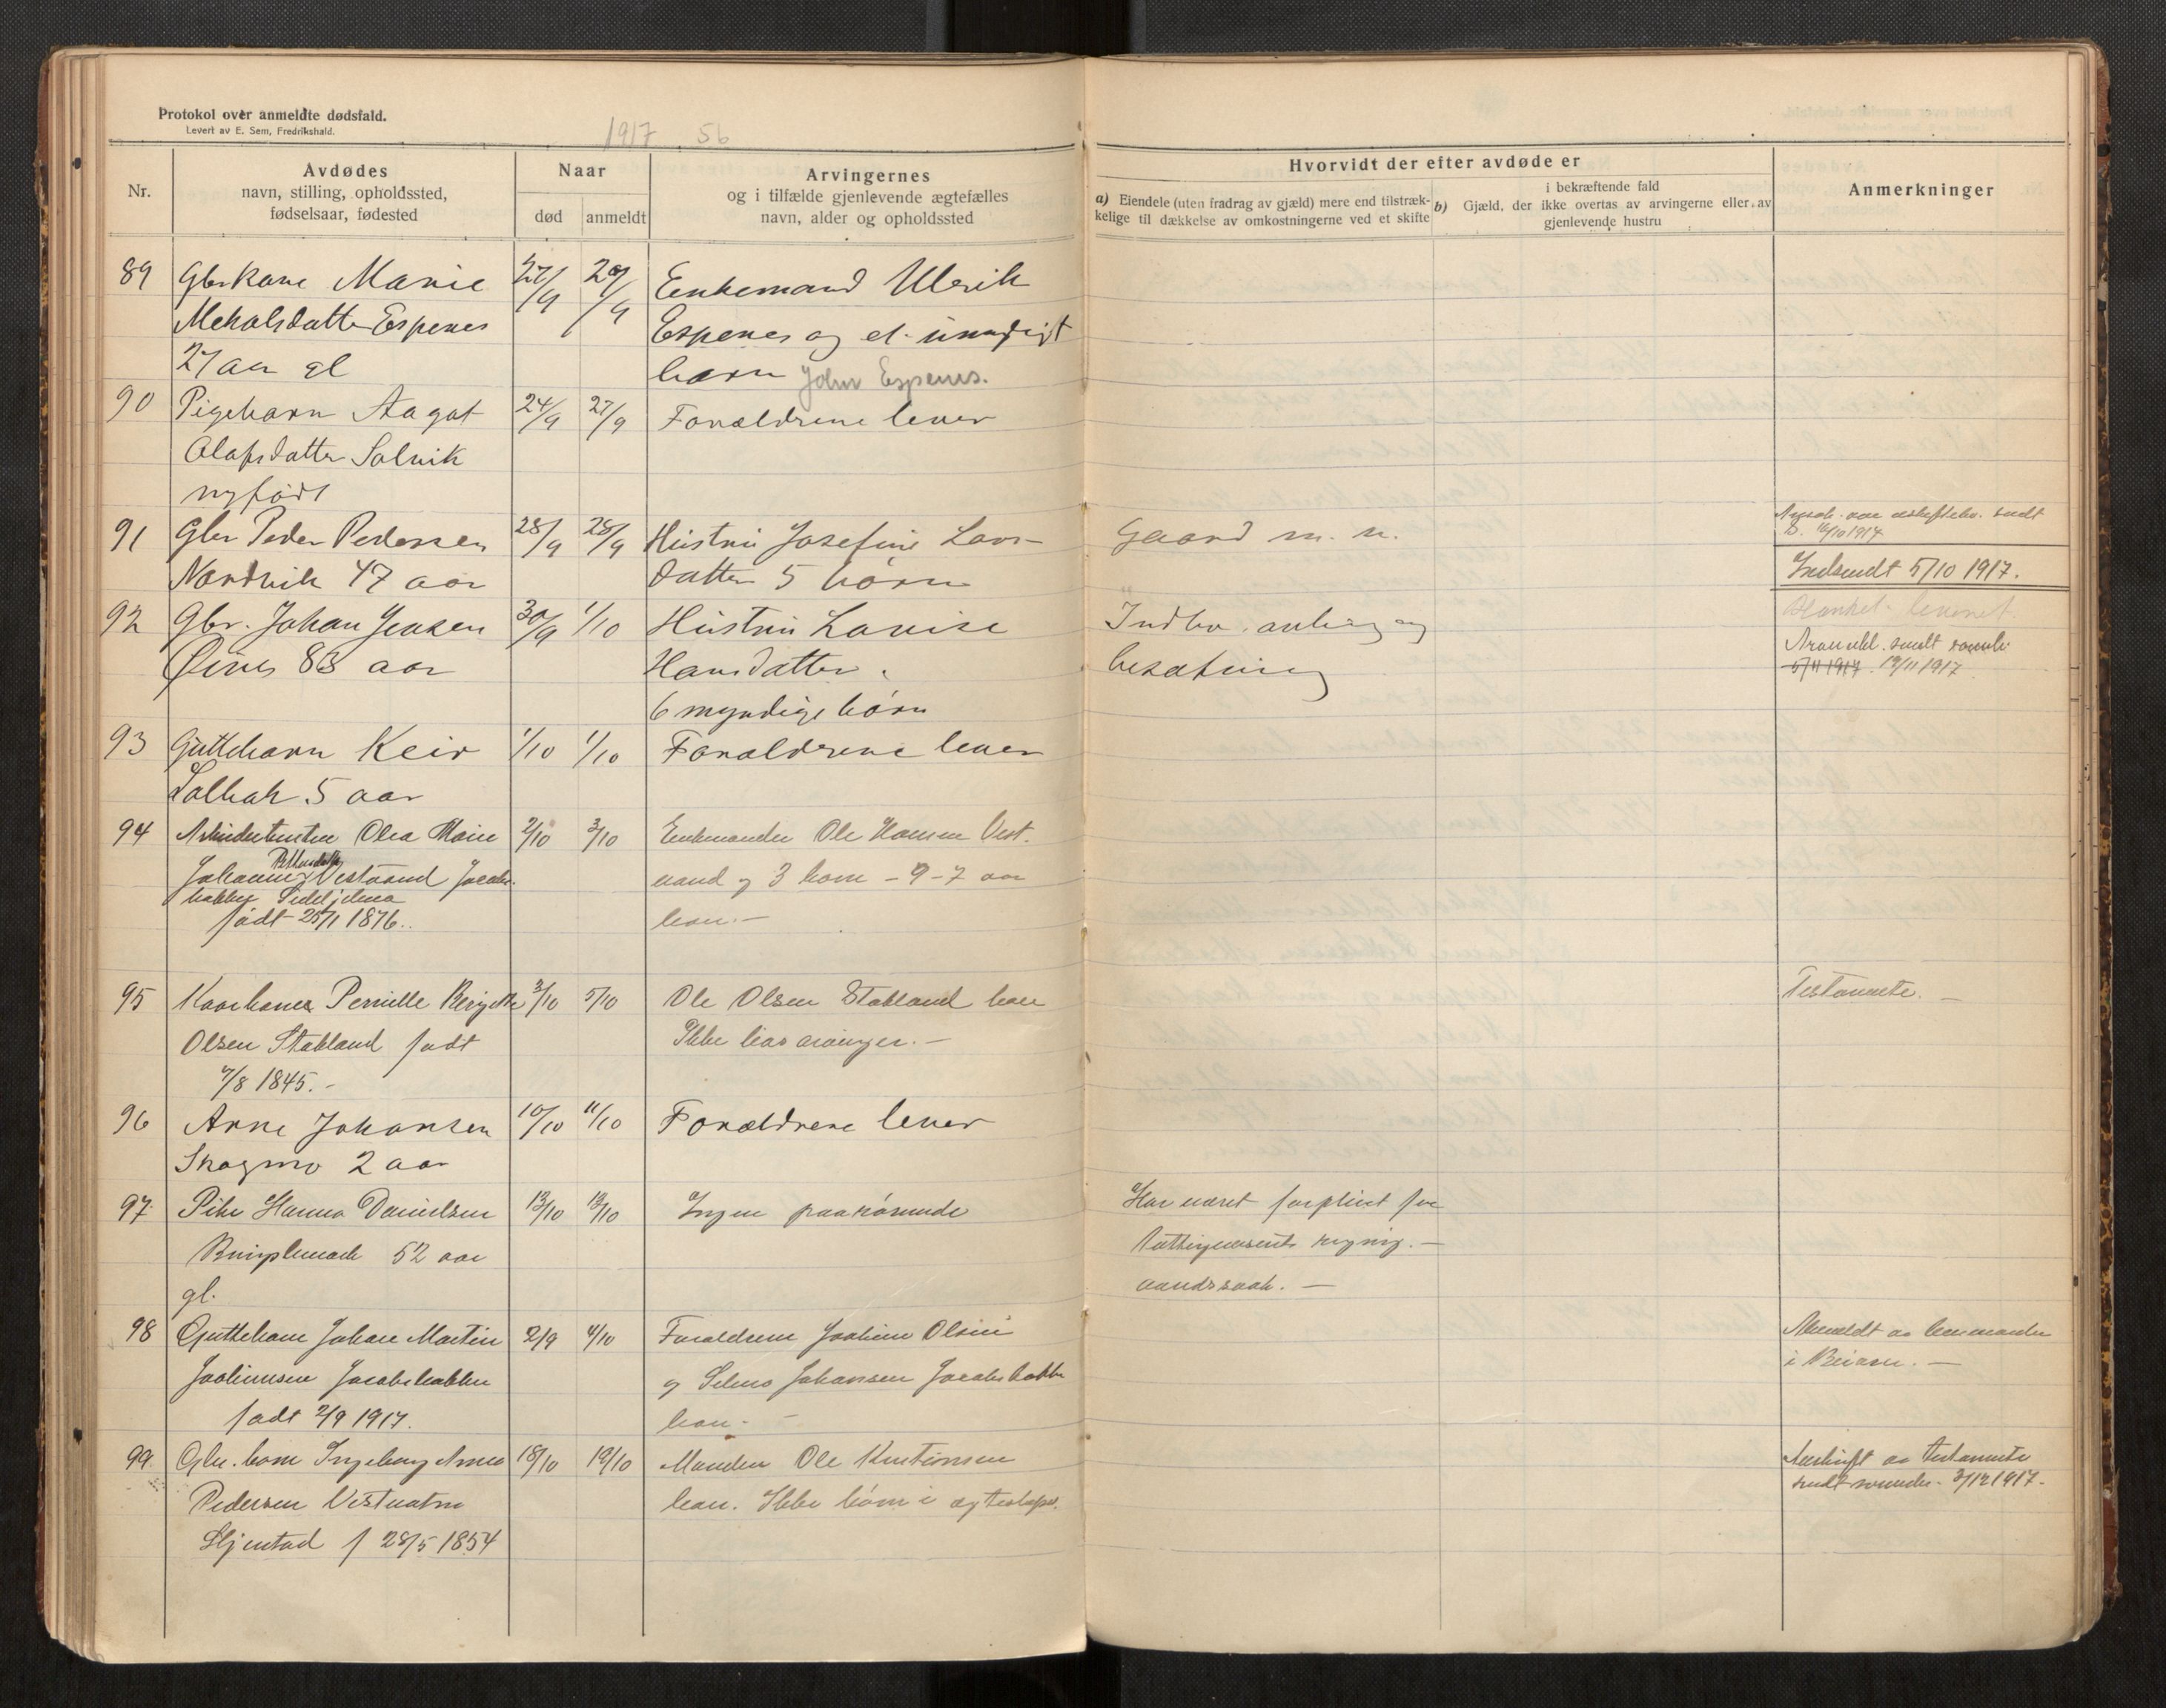 Protokol over anmeldte dødsfald.
Levert av E. Sem, Fredrikshald.
1917 56
Nr.
Avdødes
navn, stilling, opholdssted,
fødselsaar, fødested
Naar
død
anmeldt
Arvingernes
og i tilfælde gjenlevende ægtefælles
navn, alder og opholdssted
Hvorvidt der efter avdøde er
a) Eiendele (uten fradrag av gjæld) mere end tilstræk-
kelige til dækkelse av omkostningerne ved et skifte
i bekræftende fald
b) Gjæld, der ikke overtas av arvingerne eller av
gjenlevende hustru
Anmerkninger
89 Gbrkone Marie 27/9 29/9 Enkemand Ulrik
Mekalsdatter Espenes Espenes og et umyndigt
27 aar gl barn John Espenes.
90 Pigebarn Aagot 24/9 27/9 Forældrene lever
Olafsdatter Solvik
nyfødt
91 Gbr Peder Pedersen 28/9 28/9 Hustru Josefine Lars- Gaard m. m. sendt
16/10 1917
Nordvik 47 aar datter 5 børn Indsendt 5/10 1917.
92 Gbr. Johan Jensen 30/9 1/10 Hustru Lovise Indbo, og Blanket leveret
Øines 83 aar Hansdatter. besætning sendt
5/11 1917. 19/11 1917
6 myndige børn
93 Guttebarn Keir 1/10 1/10 Forældrene lever
Solbak 5 aar
94 Olea Marie 2/10 3/10 Enkemanden Ole Hansen Vest-
Pettersdatter
Johanne Vestvand vand og 3 børn - 9-7 aar
født 25/1 1876. her.-
95 Kaarkone Pernille Birgitte 3/10 5/10 Ole Olsen Stokland her Testamente. -
Olsen Stokland født Ikke livsarvinger. -
7/8 1845. -
96 Arne Johansen 10/10 11/10 Forældrene lever
Skogmo 2 aar
97. Pike Hanna Danielsen 13/10 13/10 Ingen paarørende Har været forpleiet for
52 aar fattigvæsenets regning. -
gl. aandssvak. -
98 Guttebarn Johan Martin 2/9 4/10 Forældrene Joakim Olsen Anmeldt av lensmanden
Joakimsen Jacobsbakken og Selma Johansen Jacobsbakken i Beiarn. -
født 2/9 1917. her. -
99. Gbr. kone Ingeborg Anna 18/10 19/10 Manden Ole Kristiansen Utskrift av testamente
Pedersen Vestvatn her. Ikke børn i ægteskapet. sendt 3/12 1917.
Skjerstad f 28/5 1854